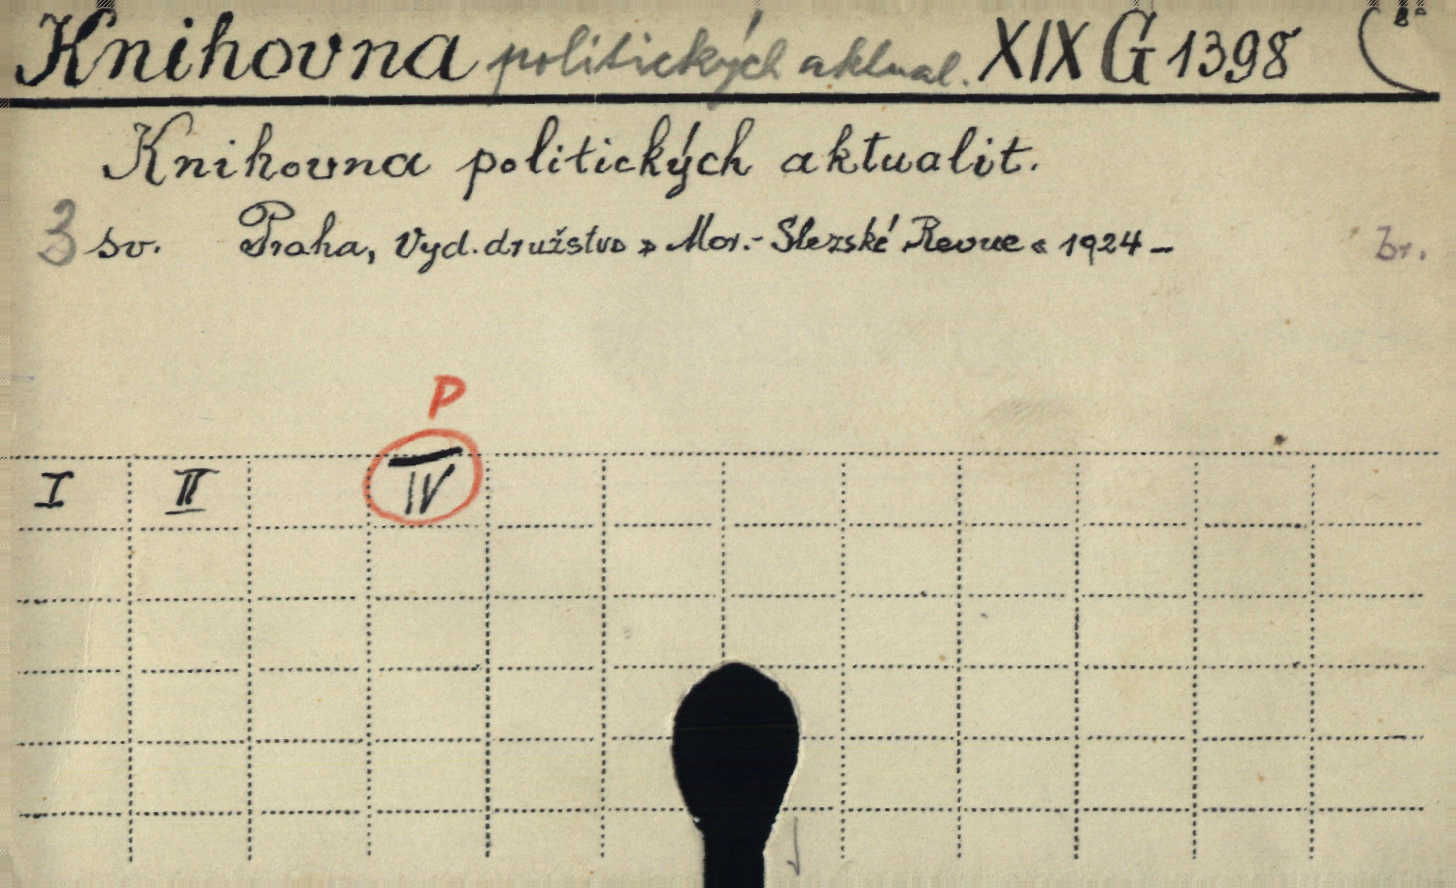 Knihovna politických aktual. XIX G 1398 8°
Knihovna politických aktualit.
3 sv. Praha, Vyd. družstvo » Mor.- Slezské Revue « 1924 – br.
P
I II IV